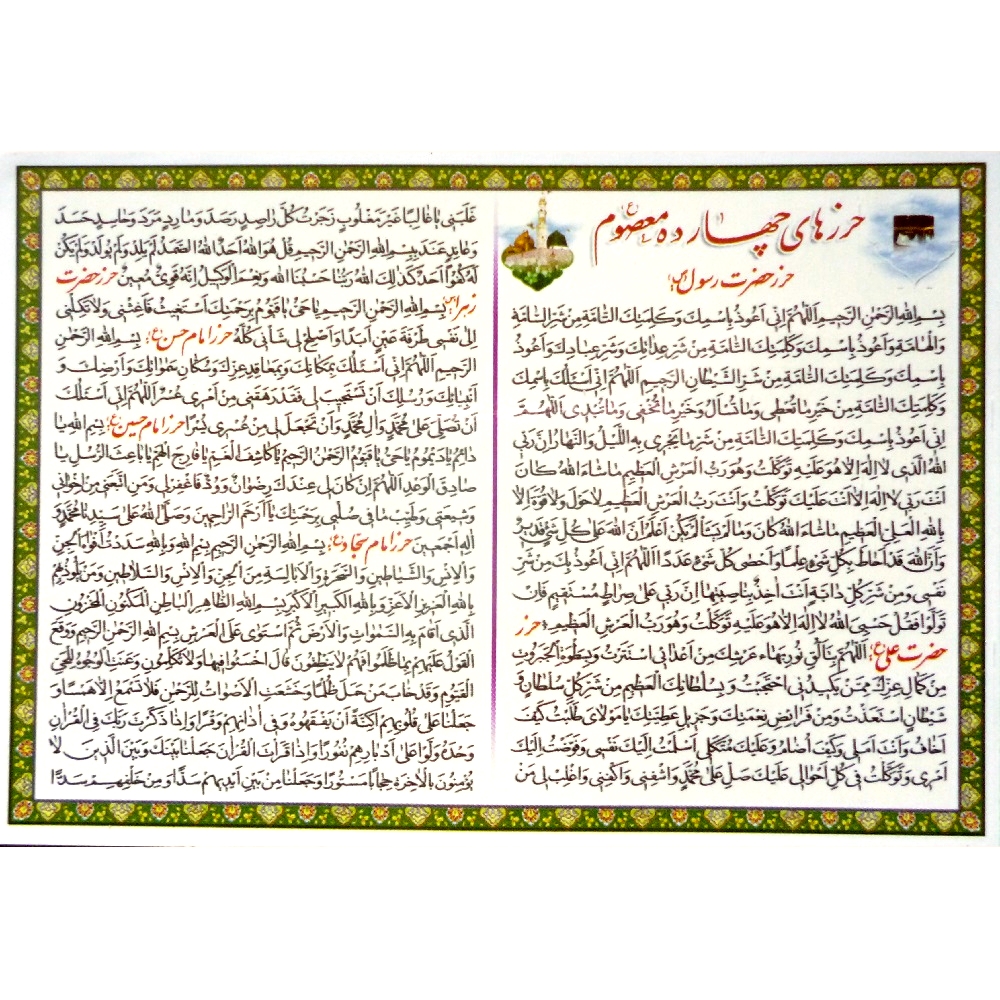 حرزهای چهارده معصوم (ع)
حرز حضرت رسول (ص)
بِسْمِ اللهِ الرَّحْمٰنِ الرَّحیمِ اَللّٰهُمَّ اِنّی اَعُوذُ بِاسْمِكَ وَكَلِمَتِكَ التّامَّةِ مِنْ شَرِّ السّامَّةِ
وَالْهامَّةِ وَاَعُوذُ بِاسْمِكَ وَكَلِمَتِكَ التّامَّةِ مِنْ شَرِّ عَذابِكَ وَشَرِّ عِبادِكَ وَاَعُوذُ
بِاسْمِكَ وَكَلِمَتِكَ التّامَّةِ مِنْ شَرِّ الشَّیْطانِ الرَّجیمِ اَللّٰهُمَّ اِنّی اَسْئَلُكَ بِاسْمِكَ
وَكَلِمَتِكَ التّامَّةِ مِنْ خَیْرِ ما تُعْطی وَما تُسْأَلُ وَخَیْرِ ما تُخْفی وَما تُبْدی اَللّٰهُمَّ
اِنّی اَعُوذُ بِاسْمِكَ وَكَلِمَتِكَ التّامَّةِ مِنْ شَرِّ ما یَجْری بِهِ اللَّیْلُ وَالنَّهارُ اِنَّ رَبِّیَ
اللهُ الَّذی لا اِلٰهَ اِلاّ هُوَ عَلَیْهِ تَوَكَّلْتُ وَهُوَ رَبُّ الْعَرْشِ الْعَظیمِ ما شاءَ اللهُ كانَ
اَنْتَ رَبّی لا اِلٰهَ اِلاّ اَنْتَ عَلَیْكَ تَوَكَّلْتُ وَاَنْتَ رَبُّ الْعَرْشِ الْعَظیمِ لا حَوْلَ وَلا قُوَّةَ اِلاّ
بِاللهِ الْعَلِیِّ الْعَظیمِ ما شاءَ اللهُ كانَ وَما لَمْ یَشَأْ لَمْ یَكُنْ اَعْلَمُ اَنَّ اللهَ عَلی كُلِّ شَیْءٍ قَدیرٌ
وَاَنَّ اللهَ قَدْ اَحاطَ بِكُلِّ شَیْءٍ عِلْماً وَاَحْصی كُلَّ شَیْءٍ عَدَداً اَللّٰهُمَّ اِنّی اَعُوذُ بِكَ مِنْ شَرِّ
نَفْسی وَمِنْ شَرِّ كُلِّ دابَّةٍ اَنْتَ اخِذٌ بِناصِیَتِها اِنَّ رَبّی عَلی صِراطٍ مُسْتَقیمٍ فَاِنْ
تَوَلَّوْا فَقُلْ حَسْبِیَ اللهُ لا اِلٰهَ اِلاّ هُوَ عَلَیْهِ تَوَكَّلْتُ وَهُوَ رَبُّ الْعَرْشِ الْعَظیمِ حرز
حضرت علی (ع) اَللّٰهُمَّ بِتَأَلُّقِ نُورِ بَهاءِ عَرْشِكَ مِنْ اَعْدائی اسْتَتَرْتُ وَبِسَطْوَةِ الْجَبَرُوتِ
مِنْ كَمالِ عِزِّكَ مِمَّنْ یَكیدُنی احْتَجَبْتُ وَبِسُلْطانِكَ الْعَظیمِ مِنْ شَرِّ كُلِّ سُلْطانٍ وَ
شَیْطانٍ اسْتَعَذْتُ وَمِنْ فَرائِضِ نِعْمَتِكَ وَجَزیلِ عَطِیَّتِكَ یا مَوْلایَ طَلَبْتُ كَیْفَ
اَخافُ وَاَنْتَ اَمَلی وَكَیْفَ اُضامُ وَعَلَیْكَ مُتَّكَلی اَسْلَمْتُ اِلَیْكَ نَفْسی وَفَوَّضْتُ اِلَیْكَ
اَمْری وَتَوَكَّلْتُ فی كُلِّ اَحْوالی عَلَیْكَ صَلِّ عَلی مُحَمَّدٍ وَاشْفِنی وَاكْفِنی وَاغْلِبْ لی مَنْ
غَلَبَنی یا غالِباً غَیْرَ مَغْلُوبٍ زَجَرْتُ كُلَّ راصِدٍ رَصَدَ وَمارِدٍ مَرَدَ وَحاسِدٍ حَسَدَ
وَعانِدٍ عَنَدَ بِبِسْمِ اللهِ الرَّحْمٰنِ الرَّحیمِ قُلْ هُوَ اللهُ اَحَدٌ اَللهُ الصَّمَدُ لَمْ یَلِدْ وَلَمْ یُولَدْ وَلَمْ یَكُنْ
لَهُ كُفُواً اَحَدٌ كَذٰلِكَ اللهُ رَبُّنا حَسْبُنَا اللهُ وَنِعْمَ الْوَكیلُ اِنَّهُ قَوِیٌّ مُعینٌ حرز حضرت
زهرا (س) بِسْمِ اللهِ الرَّحْمٰنِ الرَّحیمِ یا حَیُّ یا قَیُّومُ بِرَحْمَتِكَ اَسْتَغیثُ فَاَغِثْنی وَلا تَكِلْنی
اِلی نَفْسی طَرْفَةَ عَیْنٍ اَبَداً وَاَصْلِحْ لی شَأْنی كُلَّهُ حرز امام حسن (ع) بِسْمِ اللهِ الرَّحْمٰنِ
الرَّحیمِ اَللّٰهُمَّ اِنّی اَسْئَلُكَ بِمَكانِكَ وَبِمَعاقِدِ عِزِّكَ وَسُكّانِ سَمٰواتِكَ وَاَرْضِكَ وَ
اَنْبِیائِكَ وَرُسُلِكَ اَنْ تَسْتَجیبَ لی فَقَدْ رَهِقَنی مِنْ اَمْری عُسْرٌ اَللّٰهُمَّ اِنّی اَسْئَلُكَ
اَنْ تُصَلِّیَ عَلی مُحَمَّدٍ وَالِ مُحَمَّدٍ وَاَنْ تَجْعَلَ لی مِنْ عُسْری یُسْراً حرز امام حسین (ع) بِسْمِ اللهِ یا
دائِمُ یا دَیْمُومُ یا حَیُّ یا قَیُّومُ الرَّحْمٰنُ الرَّحیمُ یا كاشِفَ الْغَمِّ یا فارِجَ الْهَمِّ یا باعِثَ الرُّسُلِ یا
صادِقَ الْوَعْدِ اَللّٰهُمَّ اِنْ كانَ لی عِنْدَكَ رِضْوانٌ وَوُدٌّ فَاغْفِرْ لی وَمَنِ اتَّبَعَنی مِنْ اِخْوانی
وَشیعَتی وَطَیِّبْ ما فی صُلْبی بِرَحْمَتِكَ یا اَرْحَمَ الرّاحِمینَ وَصَلَّی اللهُ عَلی سَیِّدِنا مُحَمَّدٍ وَ
الِهِ اَجْمَعینَ حرز امام سجاد (ع) بِسْمِ اللهِ الرَّحْمٰنِ الرَّحیمِ بِسْمِ اللهِ وَبِاللهِ سَدَدْتُ اَفْواهَ الْجِنِّ
وَالْاِنْسِ وَالشَّیاطینِ وَالسَّحَرَةِ وَالْاَبالِسَةِ مِنَ الْجِنِّ وَالْاِنْسِ وَالسَّلاطینِ وَمَنْ یَلُوذُ بِهِمْ
بِاللهِ الْعَزیزِ الْاَعَزِّ وَبِاللهِ الْكَبیرِ الْاَكْبَرِ بِسْمِ اللهِ الظّاهِرِ الْباطِنِ الْمَكْنُونِ الْمَخْزُونِ
الَّذی اَقامَ بِهِ السَّمٰواتِ وَالْاَرْضَ ثُمَّ اسْتَوی عَلَی الْعَرْشِ بِسْمِ اللهِ الرَّحْمٰنِ الرَّحیمِ وَوَقَعَ
الْقَوْلُ عَلَیْهِمْ بِما ظَلَمُوا فَهُمْ لا یَنْطِقُونَ قالَ اخْسَئُوا فیها وَلا تُكَلِّمُونِ وَعَنَتِ الْوُجُوهُ لِلْحَیِّ
الْقَیُّومِ وَقَدْ خابَ مَنْ حَمَلَ ظُلْماً وَخَشَعَتِ الْاَصْواتُ لِلرَّحْمٰنِ فَلا تَسْمَعُ اِلاّ هَمْساً وَ
جَعَلْنا عَلی قُلُوبِهِمْ اَكِنَّةً اَنْ یَفْقَهُوهُ وَفی اذانِهِمْ وَقْراً وَاِذا ذَكَرْتَ رَبَّكَ فِی الْقُرْانِ
وَحْدَهُ وَلَّوْا عَلی اَدْبارِهِمْ نُفُوراً وَاِذا قَرَأْتَ الْقُرْانَ جَعَلْنا بَیْنَكَ وَبَیْنَ الَّذینَ لا
یُؤْمِنُونَ بِالْاخِرَةِ حِجاباً مَسْتُوراً وَجَعَلْنا مِنْ بَیْنِ اَیْدیهِمْ سَدّاً وَمِنْ خَلْفِهِمْ سَدّاً